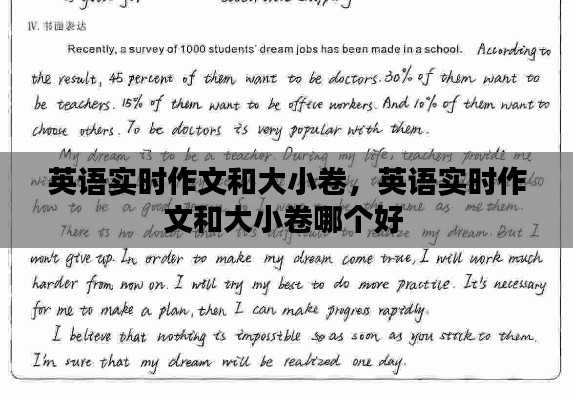 IV. 书面表达
Recently, a survey of 1000 students' dream jobs has been made in a school. According to
the result, 45 percent of them want to be doctors. 30% of them want to
be teachers. 15% of them want to be office workers. And 10% of them want to
choose others. To be doctors is very popular with them.
My dream is to be a teacher. During my life, teachers provide me
英语实时作文和大小卷，英语实时作
how to be a good me as me them.
文和大小卷哪个好
There is no doubt my dream. But I
won't give up. In order to make my dream come true, I will work much
harder from now on. I will try my best to do more practice. It's necessary
for me to make a plan, then I can make progress rapidly.
I believe that nothing is impossible so as soon as you stick to them.
I'm sure that my dream will be realized one day.